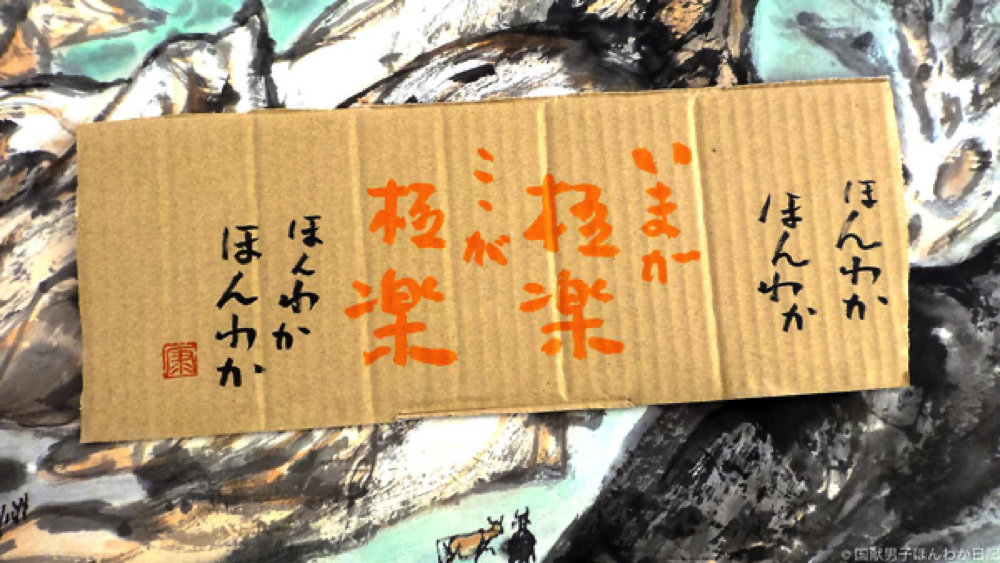 ほんわか
ほんわか
いまが
極楽
ここが
極楽
ほんわか
ほんわか
康
©国献男子ほんわか日記